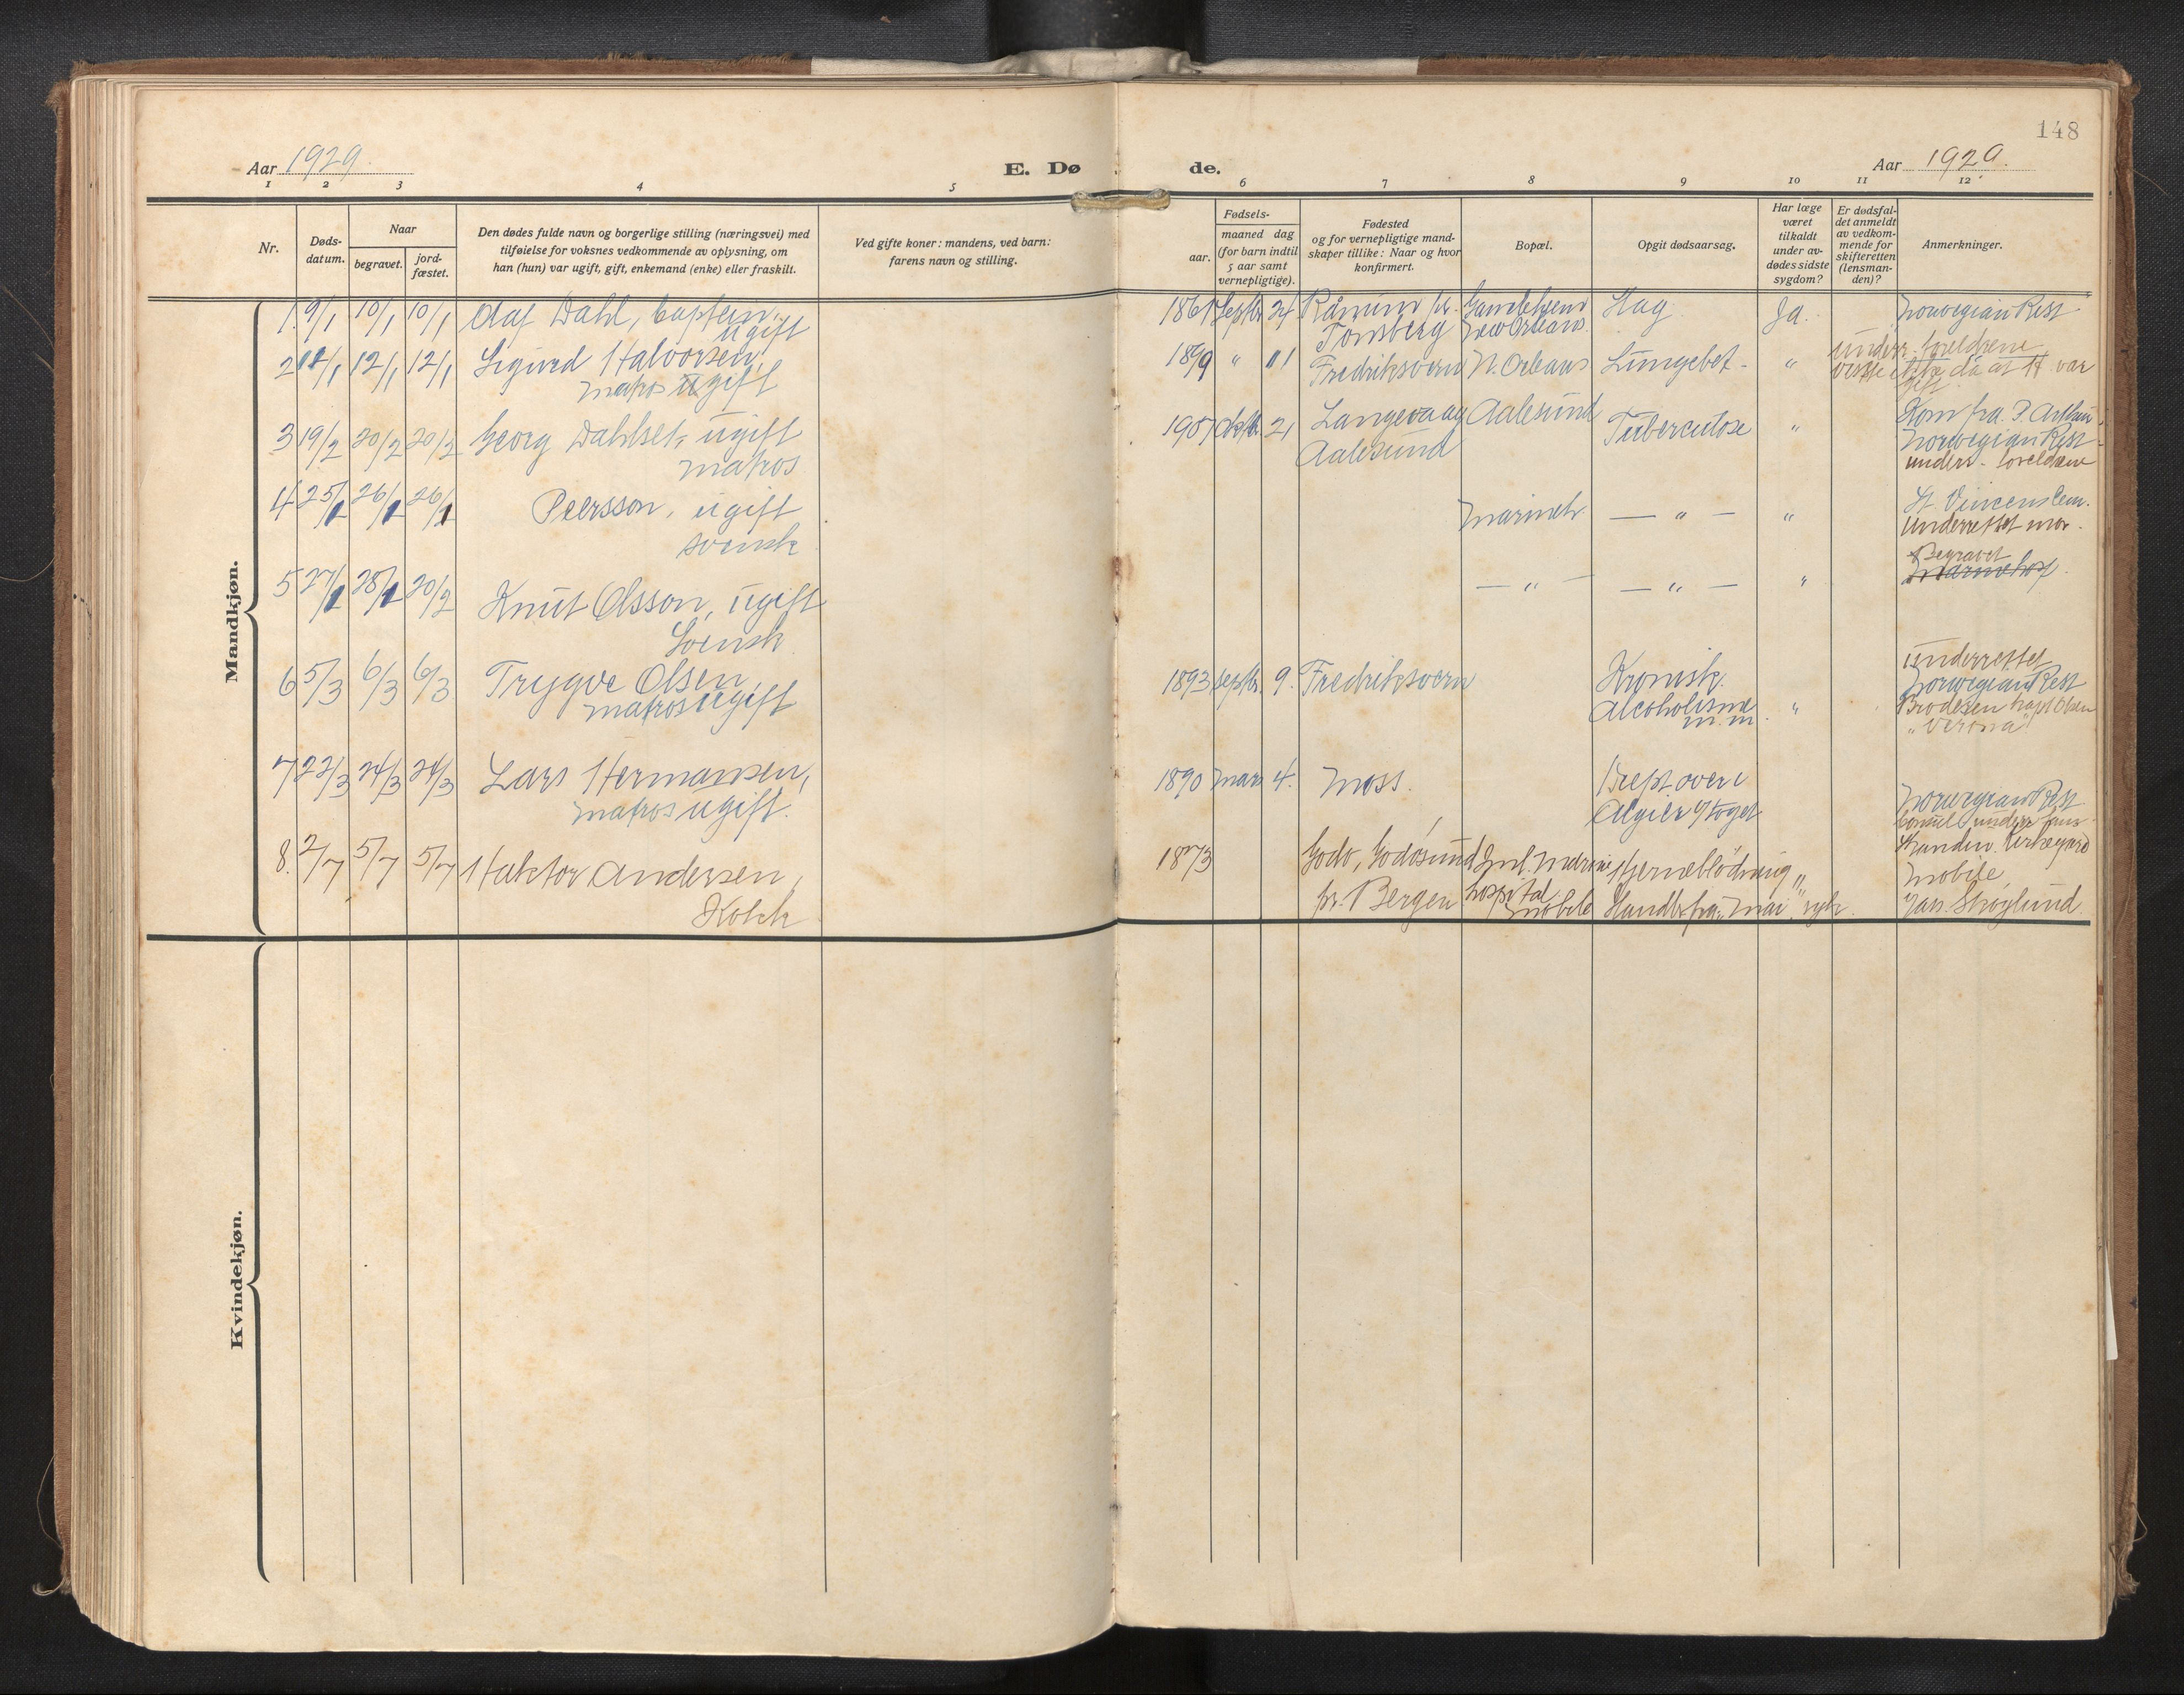 148
Aar 1929.
E. Dø
de.
Aar 1929.
1 2 3 4 5
6 7 8 9 10 11 12
Nr.
Døds-
datum.
Naar
begravet.
jord-
fæstet.
Den dødes fulde navn og borgerlige stilling (næringsvei) med
tilføielse for voksnes vedkommende av oplysning, om
han (hun) var ugift, gift, enkemand (enke) eller fraskilt.
Ved gifte koner: mandens, ved barn:
farens navn og stilling.
Fødsels-
aar.
maaned dag
(for barn indtil
5 aar samt
vernepligtige).
Fødested
og for vernepligtige mand-
skaper tillike: Naar og hvor
konfirmert.
Bopæl.
Opgit dødsaarsag.
Har læge
været
tilkaldt
under av-
dødes sidste
sygdom?
Er dødsfal-
det anmeldt
av vedkom-
mende for
skifteretten
(lensman-
den)?
Anmerkninger.
Mandkjøn.
1. 9/1 10/1 10/1 Olaf Dahl, Captein,
ugift
1861 Septbr 24 Pr.
Tønsberg
New Orleans.
Slag. Ja. Norwegian Rest
2 12/1 12/1 12/1 Sigurd Halvorsen,
matros ugift
1899 " 11 Fredriksvern N. Orleans Lungebet. "
underr. foreldrene
at H var
gift.
3 19/2 20/2 20/2 Georg Dahlset, ugift
matros
1907 21 Langevaag
Aalesund
Aalesund Tuberculose "
Kom fra P. Arthur
Norwegian Rest
underr. foreldrene
4 25/1 26/1 26/1 Peersson, ugift
svensk
Marineh. — " — "
St. Vincens Cem.
Underrettet mor.
5 27/1 28/1 20/2 Knut Olsson, ugift
Svensk
— " — — " — "
Begravet
Marinehosp.
6 5/3 6/3 6/3 Trygve Olsen,
matros ugift
1893 septbr. 9. Fredriksvern
Kronisk.
Alcoholisme
m.m. "
Underrettet
Norwegian Rest
Broderen Kapt Olsen
"Verona"
7 22/3 24/3 24/3 Lars Hermansen,
matros ugift.
1890 Mars 4. Moss.
Dræpt over i
Algier af toget
Norwegian Rest
Consul underr.
8. 2/7 5/7 5/7 Haktor Andersen,
Kokk
1873 Godø, Godøsund
pr. Bergen
Marine
hospital
Mobile
Hjerneblødning "
fra Mai syk.
Skandin. Kirkegaard
Mobile,
Skoglund
Kvindekjøn.